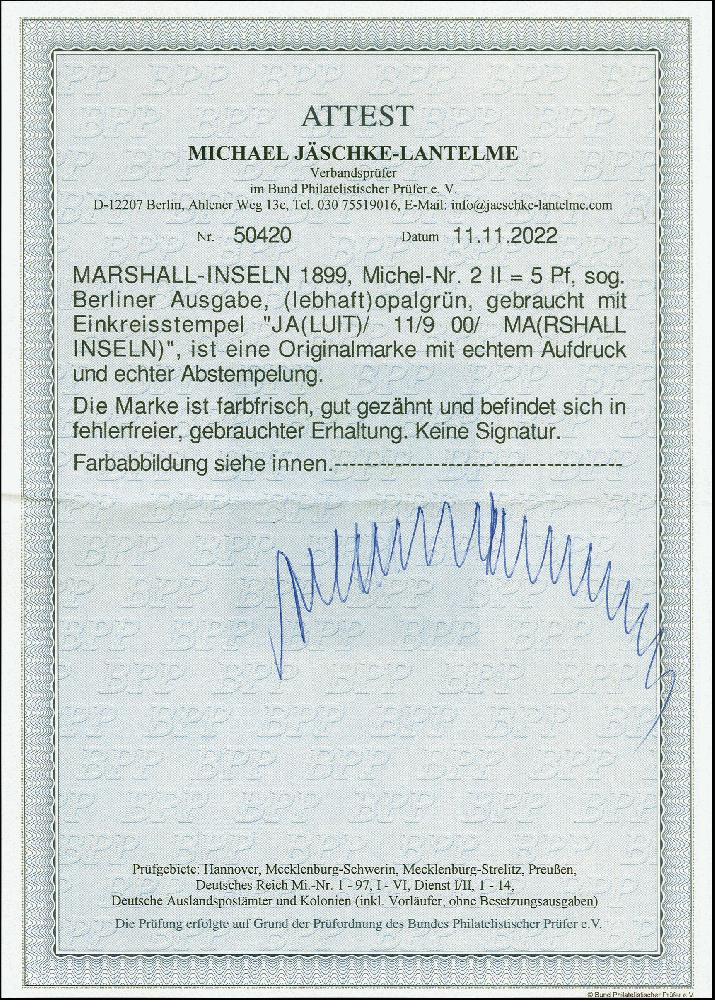 ATTEST
MICHAEL JÄSCHKE-LANTELME
Verbandsprüfer
im Bund Philatelistischer Prüfer e. V.
D-12207 Berlin, Ahlener Weg 13c, Tel. 030 75519016, E-Mail: info@jaeschke-lantelme.com
Nr. 50420 Datum 11.11.2022
MARSHALL-INSELN 1899, Michel-Nr. 2 II = 5 Pf, sog.
Berliner Ausgabe, (lebhaft)opalgrün, gebraucht mit
Einkreisstempel "JA(LUIT)/ 11/9 00/ MA(RSHALL
INSELN)", ist eine Originalmarke mit echtem Aufdruck
und echter Abstempelung.
Die Marke ist farbfrisch, gut gezähnt und befindet sich in
fehlerfreier, gebrauchter Erhaltung. Keine Signatur.
Farbabbildung siehe innen.------------------------------
Prüfgebiete: Hannover, Mecklenburg-Schwerin, Mecklenburg-Strelitz, Preußen,
Deutsches Reich Mi.-Nr. 1 - 97, I - VI, Dienst I/II, 1 - 14,
Deutsche Auslandspostämter und Kolonien (inkl. Vorläufer, ohne Besetzungsausgaben)
Die Prüfung erfolgte auf Grund der Prüfordnung des Bundes Philatelistischer Prüfer e.V.
© Bund Philatelistischer Prüfer e. V.